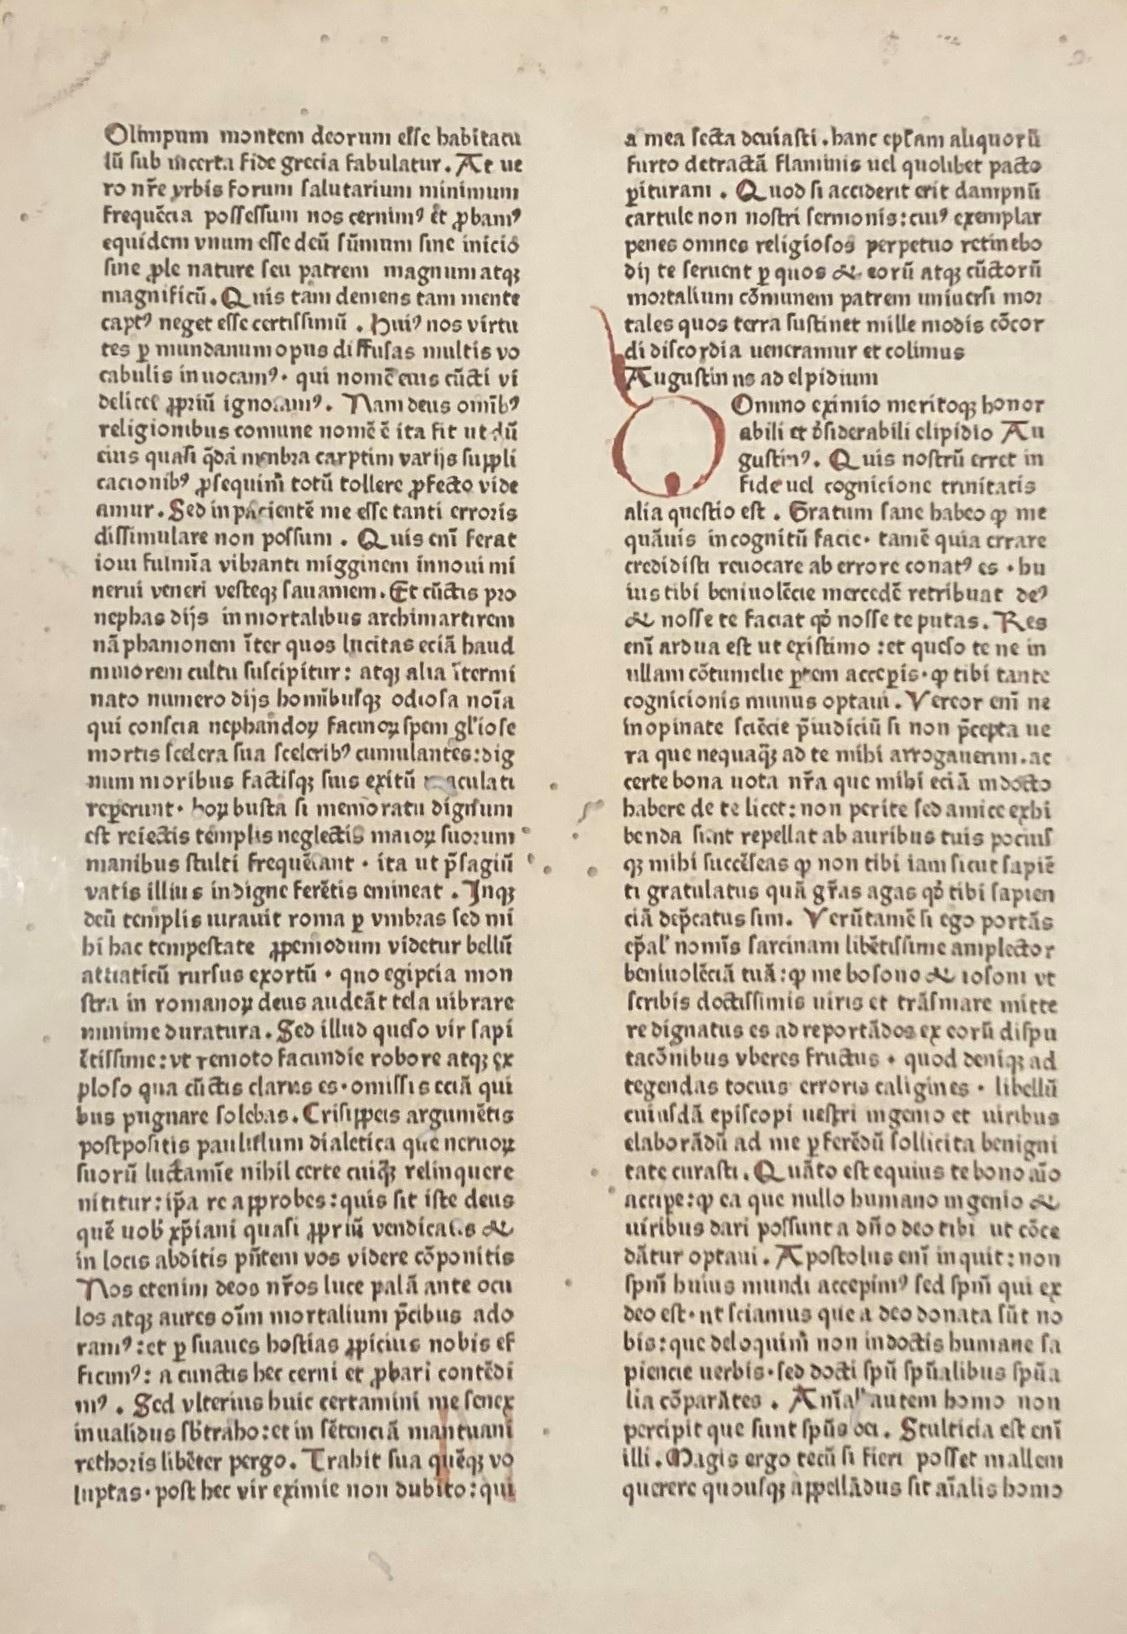 Olimpum montem deorum esse habitacu
lũ sub incerta fide grecia fabulatur. At ue
ro nr̃e yrbis forum salutarium minimum
frequẽcia possessum nos cernimꝰ et ꝓbamꝰ
equidem vnum esse deũ sũmum sine inicio
sine ꝓle nature seu patrem magnum atqꝫ
magnificũ. Quis tam demens tam mente
captꝰ neget esse certissimũ. Huiꝰ nos virtu
tes ꝑ mundanum opus diffusas multis vo
cabulis inuocamꝰ· qui nomẽ eius cũcti vi
delicet ꝓpriũ ignoramꝰ. Nam deus omĩbꝰ
religionibus comune nomẽ ẽ ita fit ut dũ
eius quasi q̃dã menbra carptim varijs suppli
cacionibꝰ ꝓsequim̃ totũ tollere ꝓfecto vide
amur. Sed inpacientẽ me esse tanti erroris
dissimulare non possum. Quis enĩ ferat
ioui fulmĩa vibranti migginem innoui mi
nerui veneri vesteqꝫ sanamem. Et cũctis pro
nephas dijs inmortalibus archimartirem
nãphamonem ĩter quos lucitas eciã haud
minorem cultu suscipitur: atqꝫ alia ĩtermi
nato numero dijs homĩbusqꝫ odiosa noĩa
qui conscia nephandoꝝ facinoꝝ spem gl'iose
mortis scelera sua sceleribꝰ cumulantes: dig
num moribus factisqꝫ suis exitũ maculati
reperunt· hoꝝ busta si memoratu dignum
est reiectis templis neglectis maioꝝ suorum
manibus stulti frequẽtant· ita ut p̃sagiũ
vatis illius indigne ferẽtis emineat. Inqꝫ
deũ templis iurauit roma ꝑ vmbras sed mi
hi hac tempestate ꝓpemodum videtur bellũ
attiaticũ rursus exortũ· quo egipcia mon
stra in romanoꝝ deus audeãt tela uibrare
minime duratura. Sed illud queso vir sapi
ẽtissime: vt remoto facundie robore atqꝫ ex
ploso qua cũctis clarus es· omissis eciã qui
bus pugnare solebas. Crisippeis argumẽtis
postpositis paulisum dialetica que neruoꝝ
suorũ luctamĩe nihil certe cuiqꝫ relinquere
nititur: ip̃a re approbes: quis sit iste deus
quẽ uob̃ xp̃iani quasi ꝓpriũ vendicatis &
in locis abditis pñtem vos videre cõponitis
Nos etenim deos nr̃os luce palã ante ocu
los atqꝫ aures oĩm mortalium p̃cibus ado
ramꝰ: et ꝑ suaues hostias ꝓpicius nobis ef
ficimꝰ: a cunctis hec cerni et ꝓbari contẽdi
mꝰ. Sed vlterius huic certamini me senex
inualidus sb̃traho: et in sẽtenciã mantuani
rethoris libẽter pergo. Trahit sua quẽqꝫ vo
luptas· post hec vir eximie non dubito: qui
a mea secta deuiasti. hanc ep̃tam aliquorũ
furto detractã flaminis uel quolibet pacto
ꝑituram. Quod si acciderit erit dampnũ
cartule non nostri sermonis: cuiꝰ exemplar
penes omnes religiosos perpetuo retinebo
dij te seruent ꝑ quos & eorũ atqꝫ cũctorũ
mortalium cõmunem patrem uniuersi mor
tales quos terra sustinet mille modis cõcor
di discordia ueneramur et colimus
Augustinus ad elpidium
Omino eximio meritoqꝫ honor
abili et d̃siderabili elipidio Au
gustinꝰ. Quis nostrũ erret in
fide uel cognicione trinitatis
alia questio est. Gratum sane habeo ꝙ me
quãuis incognitũ facie· tamẽ quia errare
credidisti reuocare ab errore conatꝰ es· hu
ius tibi beniuolẽcie mercedẽ retribuat deꝰ
& nosse te faciat qd̃ nosse te putas. Res
enĩ ardua est ut existimo: et queso te ne in
ullam cõtumelie ꝑtem accepis· ꝙ tibi tante
cognicionis munus optaui. Vereor enĩ ne
inopinate sciẽcie p̃iudiciũ si non p̃cepta ue
ra que nequaq̃ꝫ ad te mihi arrogauerim. ac
certe bona uota nr̃a que mihi eciã indocto
habere de te licet: non perite sed amice exhi
benda sunt repellat ab auribus tuis pocius
qꝫ mihi succẽseas ꝙ non tibi iam sicut sapiẽ
ti gratulatus quã gr̃as agas qd̃ tibi sapien
ciã dep̃catus sim. Verũtamẽ si ego portãs
ep̃al' nomĩs sarcinam libẽtissime amplector
beniuolẽciã tuã: ꝙ me bosono & iosoni vt
scribis doctissimis uiris et trãsmare mitte
re dignatus es ad reportãdos ex eorũ dispu
tacõnibus vberes fructus· quod deniqꝫ ad
tegendas tocius erroris caligines· libellũ
cuiusdã episcopi uestri ingenio et uiribus
elaborãdũ ad me ꝑferẽdũ sollicita benigni
tate curasti. Quãto est equius te bono aĩo
accipe: ꝙ ea que nullo humano ingenio &
uiribus dari possunt a dño deo tibi ut cõce
dãtur optaui. Apostolus enĩ inquit: non
spm̃ huius mundi accepimꝰ sed spm̃ qui ex
deo est· ut sciamus que a deo donata sũt no
bis: que deloquim̃ non indoctis humane sa
piencie uerbis· sed docti spũ spũalibus spũa
lia cõparãtes. Anĩal' autem homo non
percipit que sunt spũs dei. Stulticia est enĩ
illi. Magis ergo tecũ si fieri posset mallem
querere quousqꝫ appellãdus sit aĩalis homo